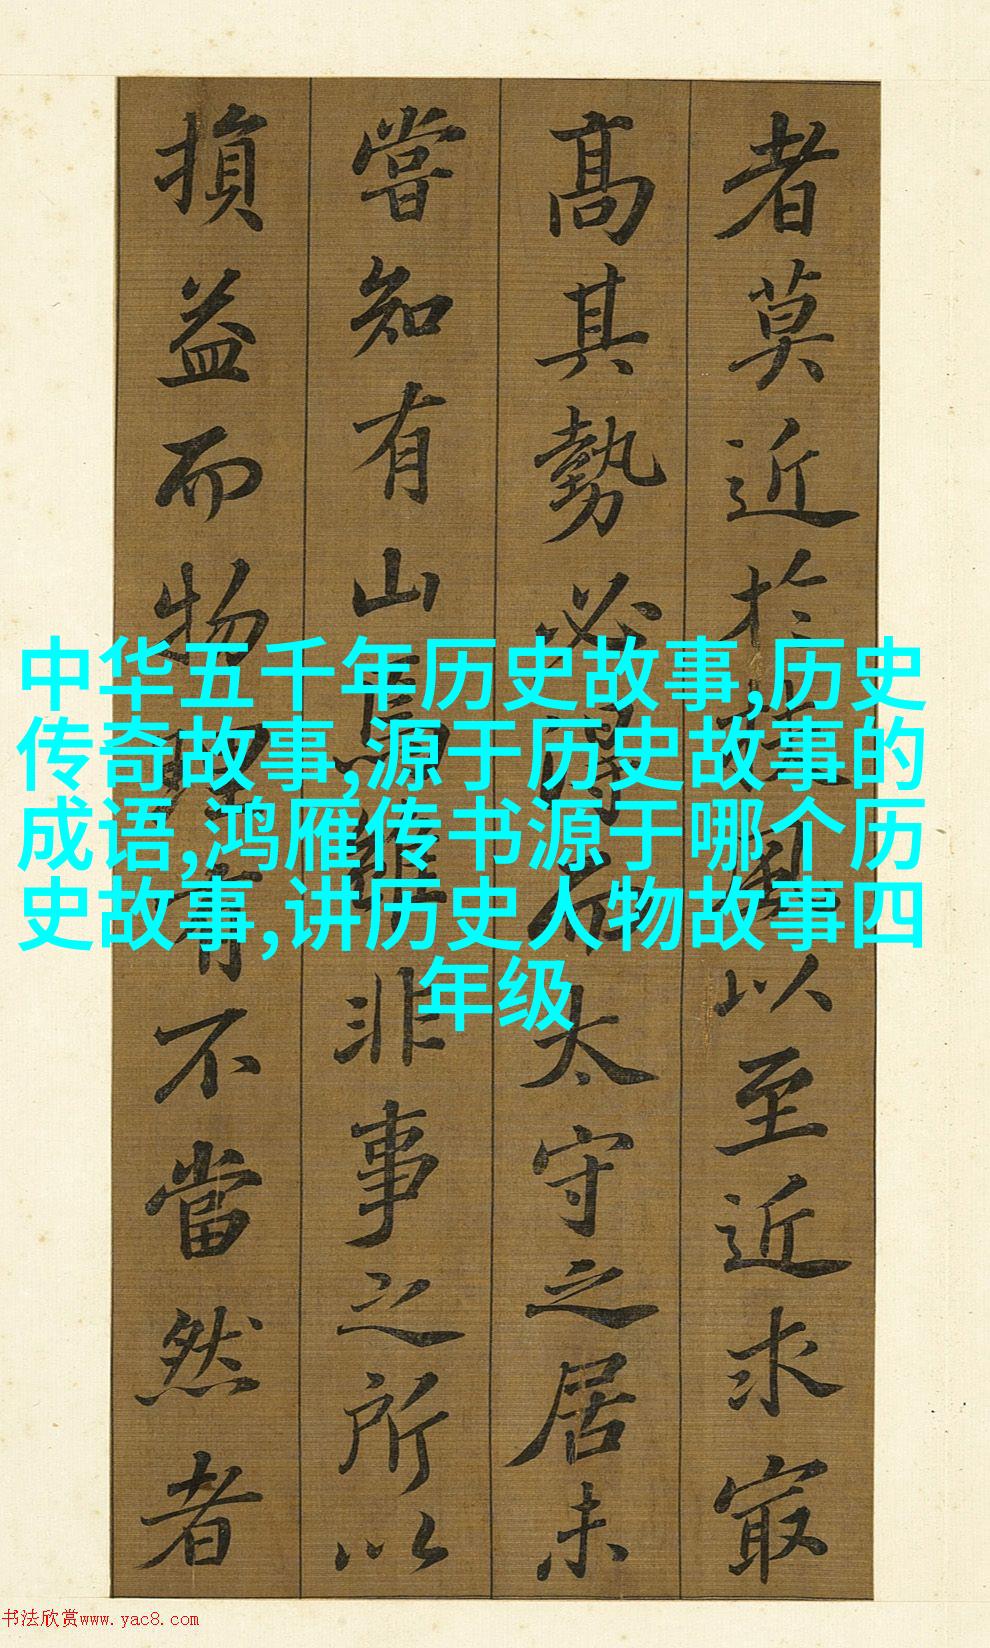 者莫近於風以至近求㝡
高其勢必得而太守之居未
嘗知有山焉雖非事之所以
損益而物理有不當然者
中华五千年历史故事,历史
传奇故事,源于历史故事的
成语,鸿雁传书源于哪个历
史故事,讲历史人物故事四
年级
书法欣赏www.yac8.com